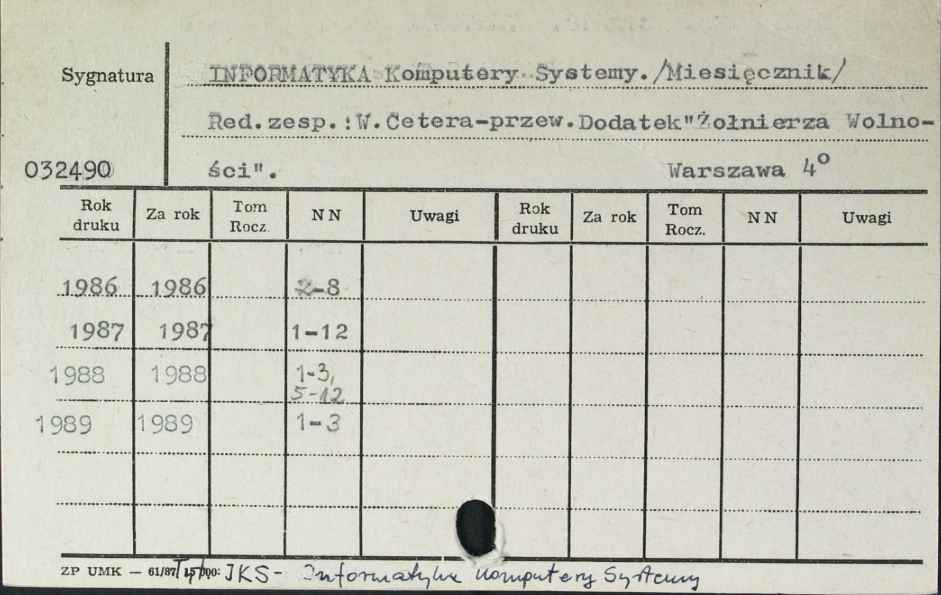 Sygnatura
INFORMATYKA Komputery Systemy./Miesięcznik/
Red.zesp.:W.Cetera-przew.Dodatek"Żołnierza Wolno-
032490 ści". Warszawa 4°
Rok druku Za rok Tom Rocz. NN Uwagi Rok druku Za rok Tom Rocz. NN Uwagi
1986 1986 2-8
1987 1987 1-12
1988 1988 1-3,
5-12
1989 1989 1-3
ZP UMK — 61/87 JKS - Informatyka Komputery Systemy